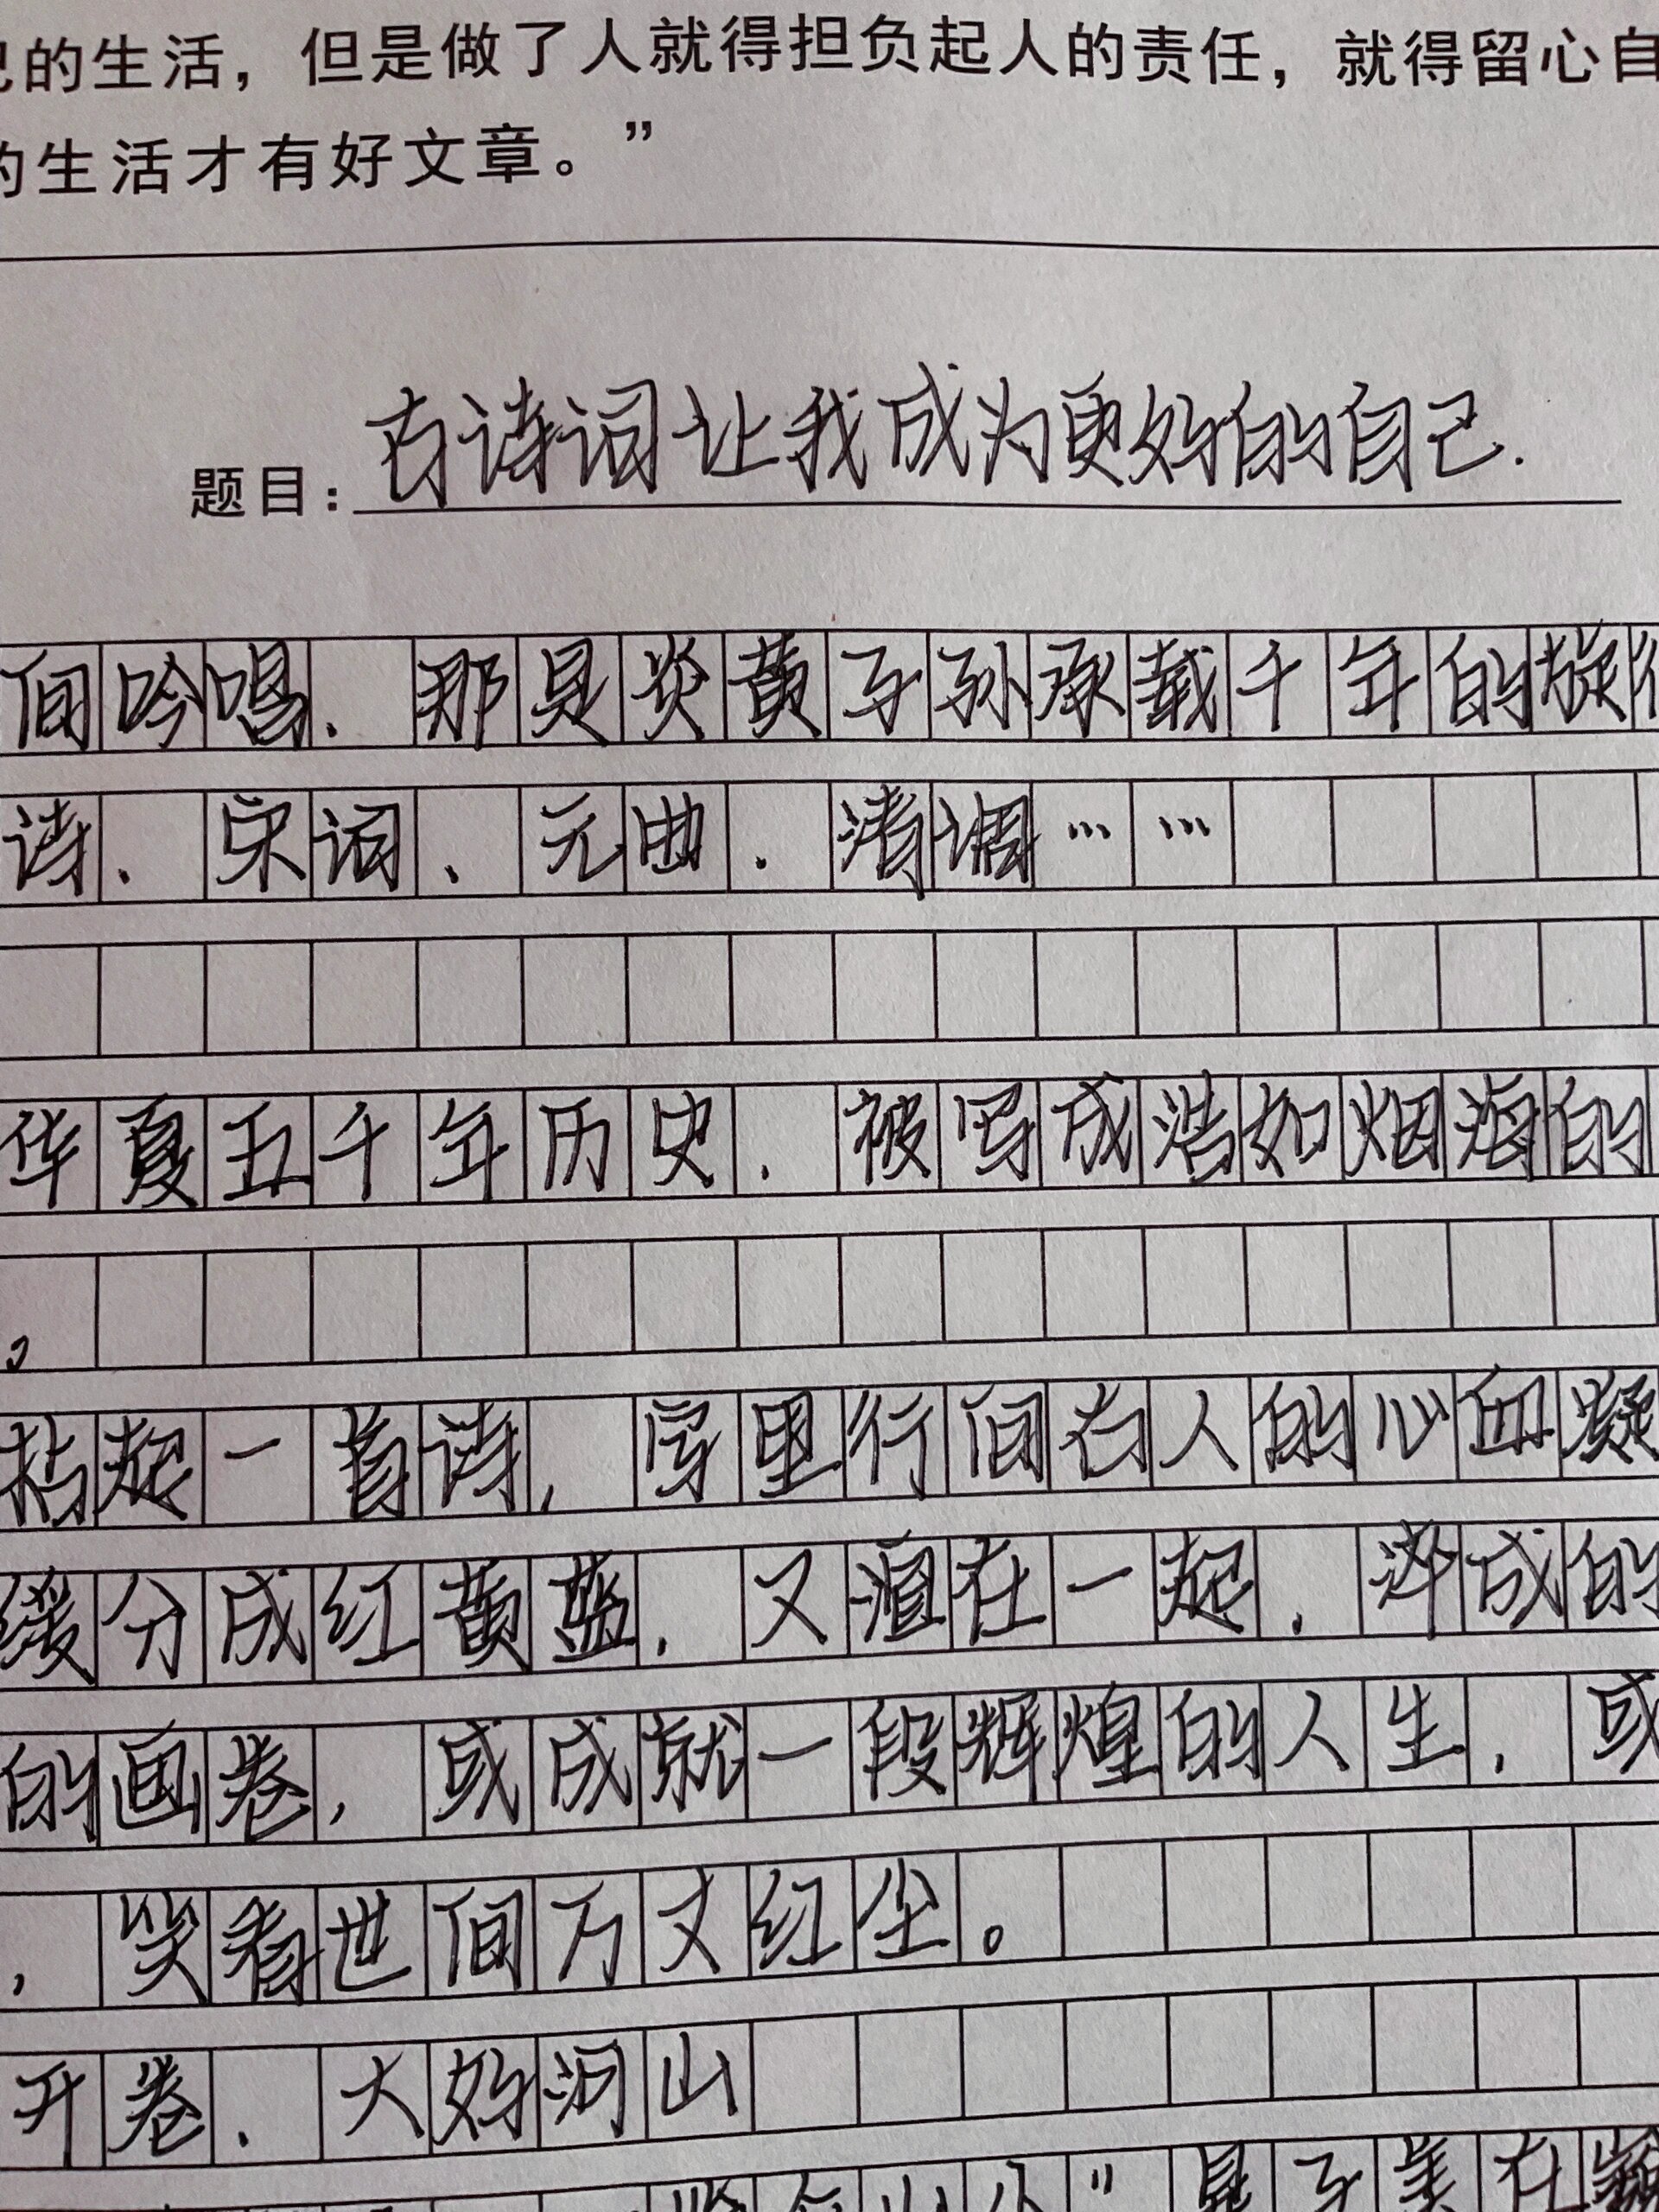 的生活，但是做了人就得担负起人的责任，就得留心自
的生活才有好文章。”
题目：古诗词让我成为更好的自己.
间吟唱.那是炎黄子孙承载千年的旋
诗、宋词、元曲.清调……
华夏五千年历史.被写成浩如烟海的
。
拈起一首诗，字里行间古人的心血凝
缓分成红黄蓝.又涌在一起.淬成的
的画卷，或成就一段辉煌的人生.或
，笑看世间万丈红尘。
开卷.大好河山
”是子美在